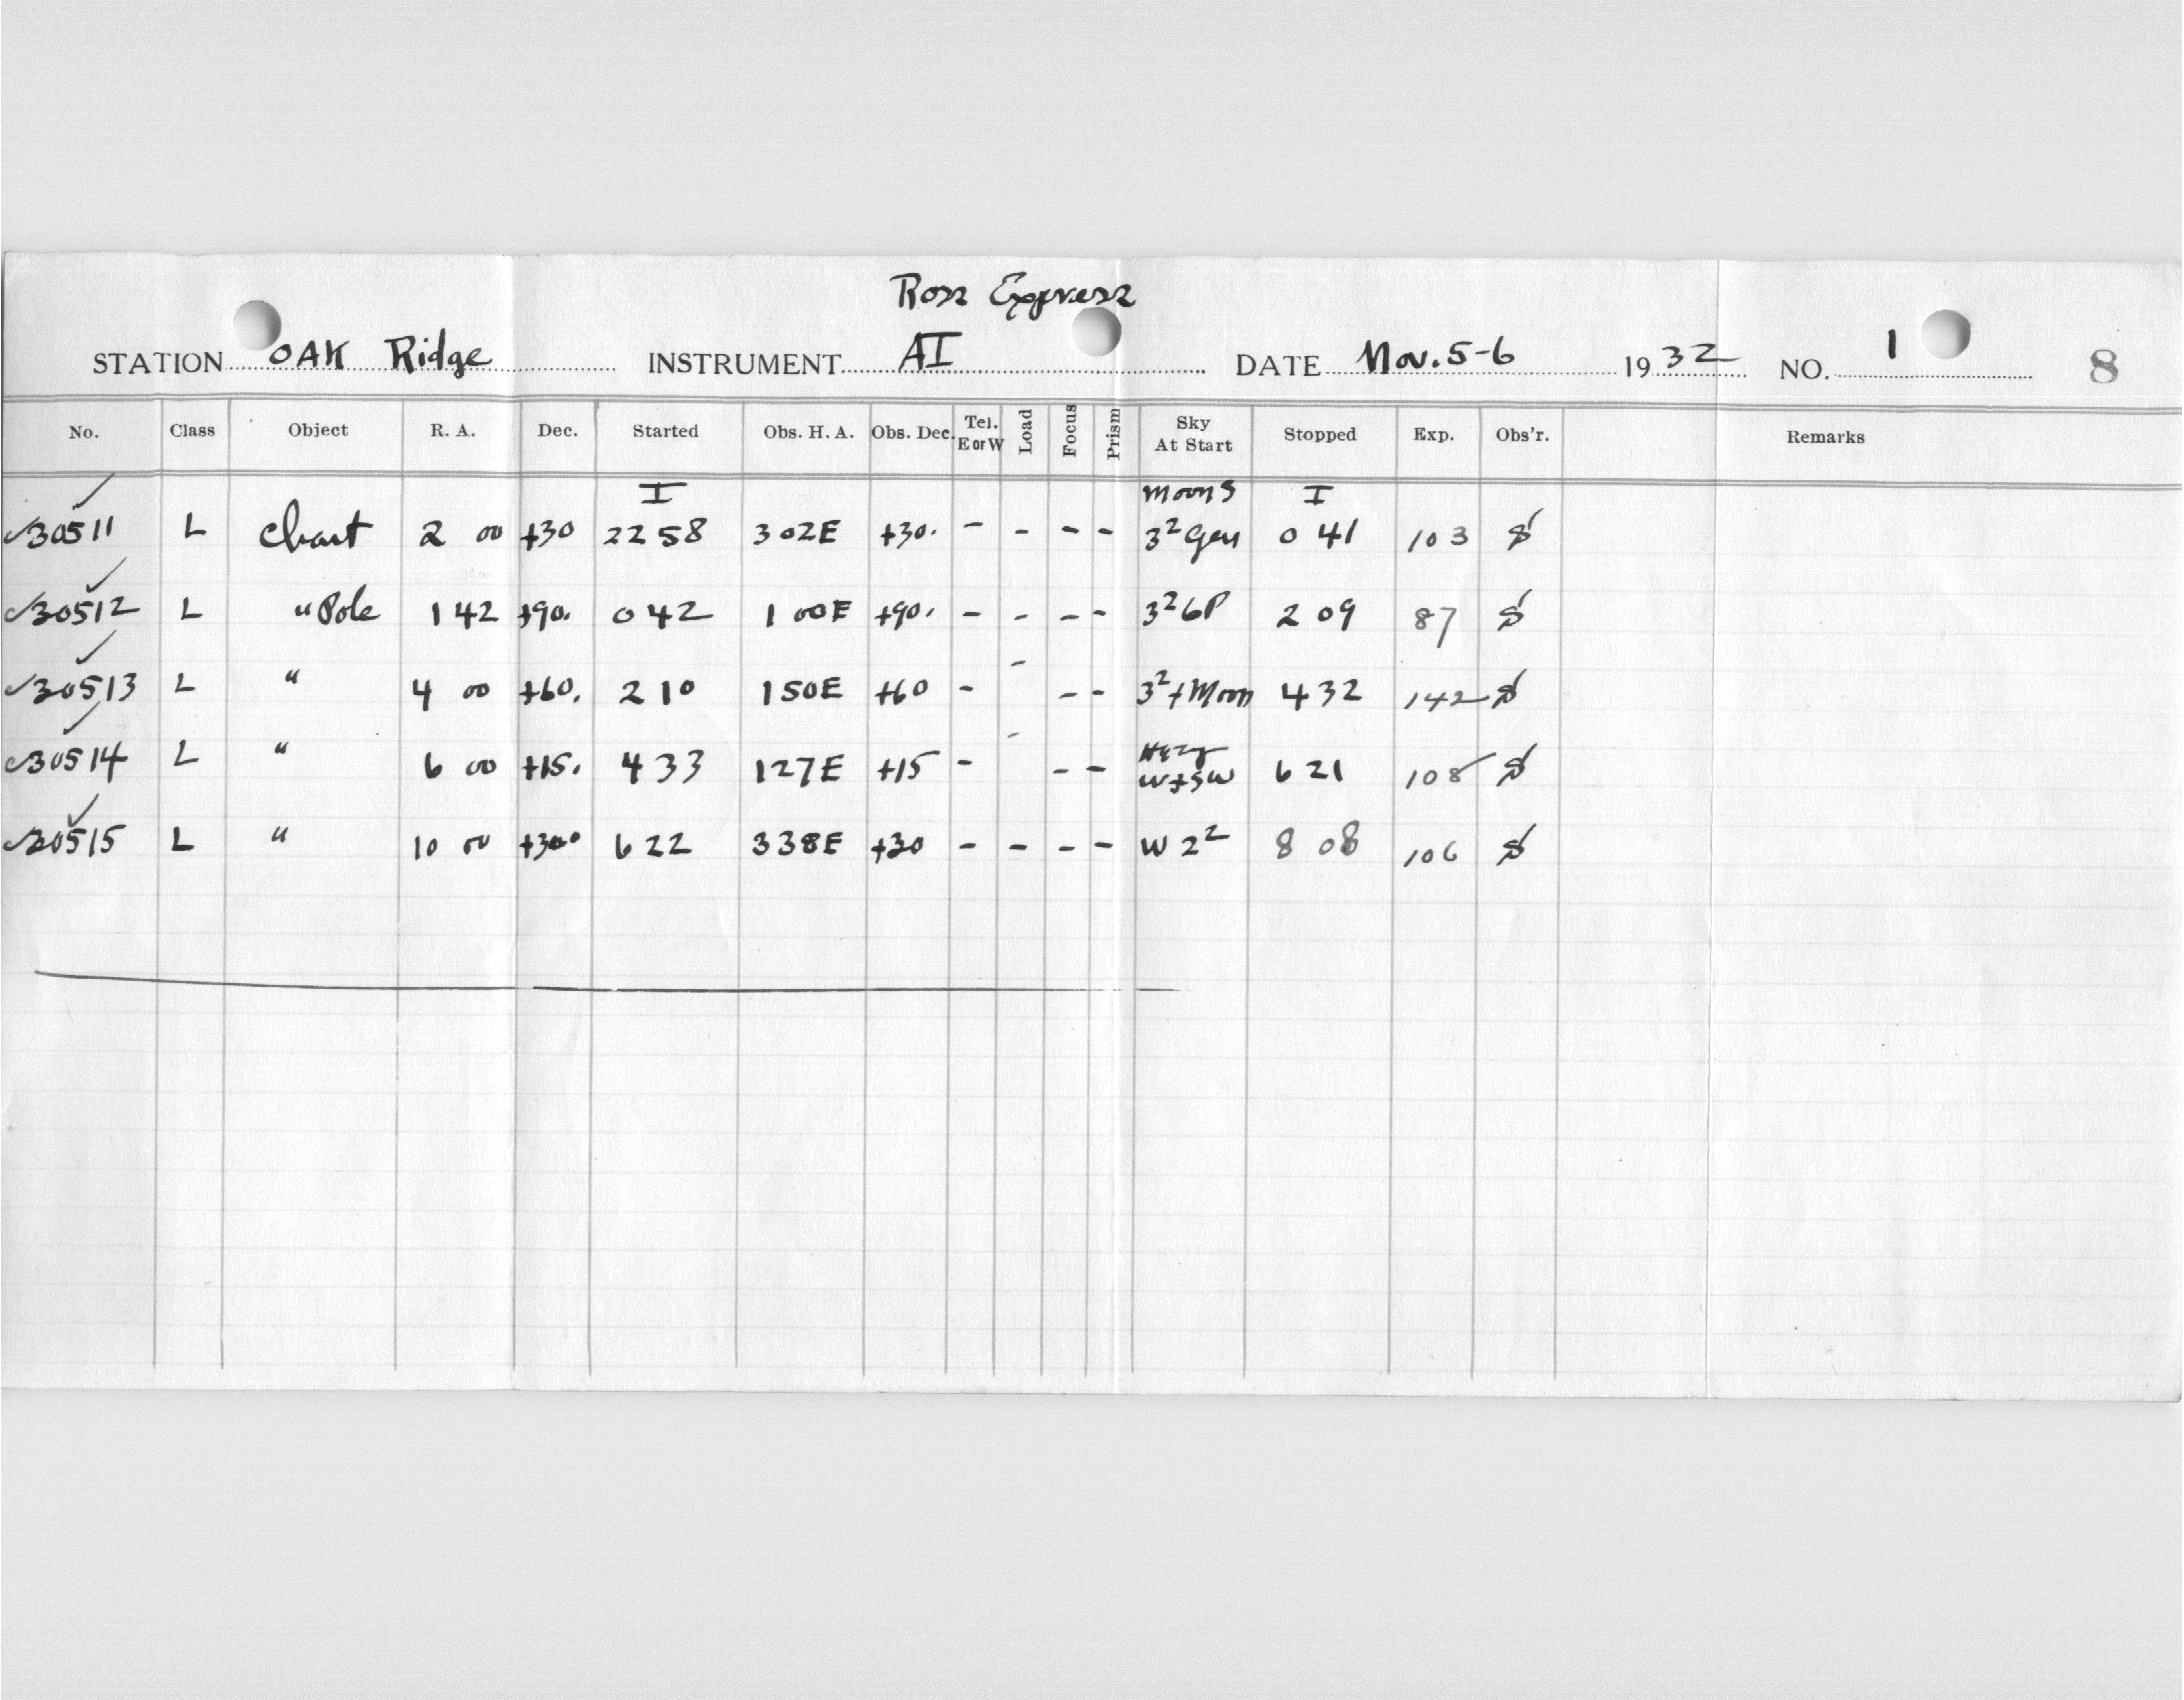 Ross Express
STATION OAK Ridge INSTRUMENT AI DATE Nov. 5-6 1932 NO. 1 8
No. Class Object R. A. Dec. Started Obs. H. A. Obs. Dec. Tel. E or W Load Focus Prism Sky At Start Stopped Exp. Obs'r. Remarks
I moon S I
30511 L Chart 2 00 +30 22 58 3 02E +30. - - - - 3² 0 41 103 S
30512 L " Pole 1 42 +90. 0 42 1 00E +90. - - - - 3² 6P 2 09 87 S
30513 L " 4 00 +60. 2 10 1 50E +60 - - - - 3² + Moon 4 32 142 S
30514 L " 6 00 +15. 4 33 1 27E +15 - - - - Hazy W+SW 6 21 108 S
30515 L " 10 00 +30 6 22 3 38E +30 - - - - W 2² 8 08 106 S